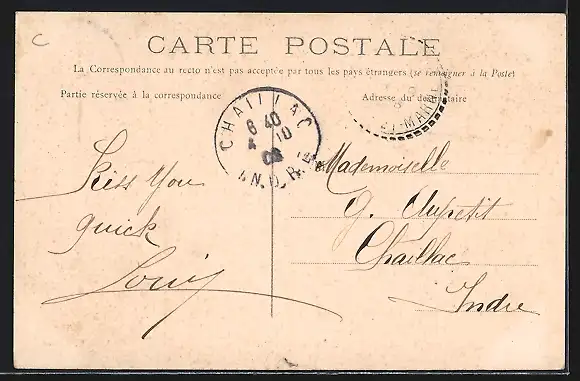 C
CARTE POSTALE
La Correspondance au recto n'est pas acceptée par tous les pays étrangers (se renseigner à la Poste)
Partie réservée à la correspondance
Adresse du destinataire
CHAILLAC
6 40
4 10
08
INDRE
MARNE
Kiss You
quick
Louis
Mademoiselle
G. Aupetit
Chaillac
Indre